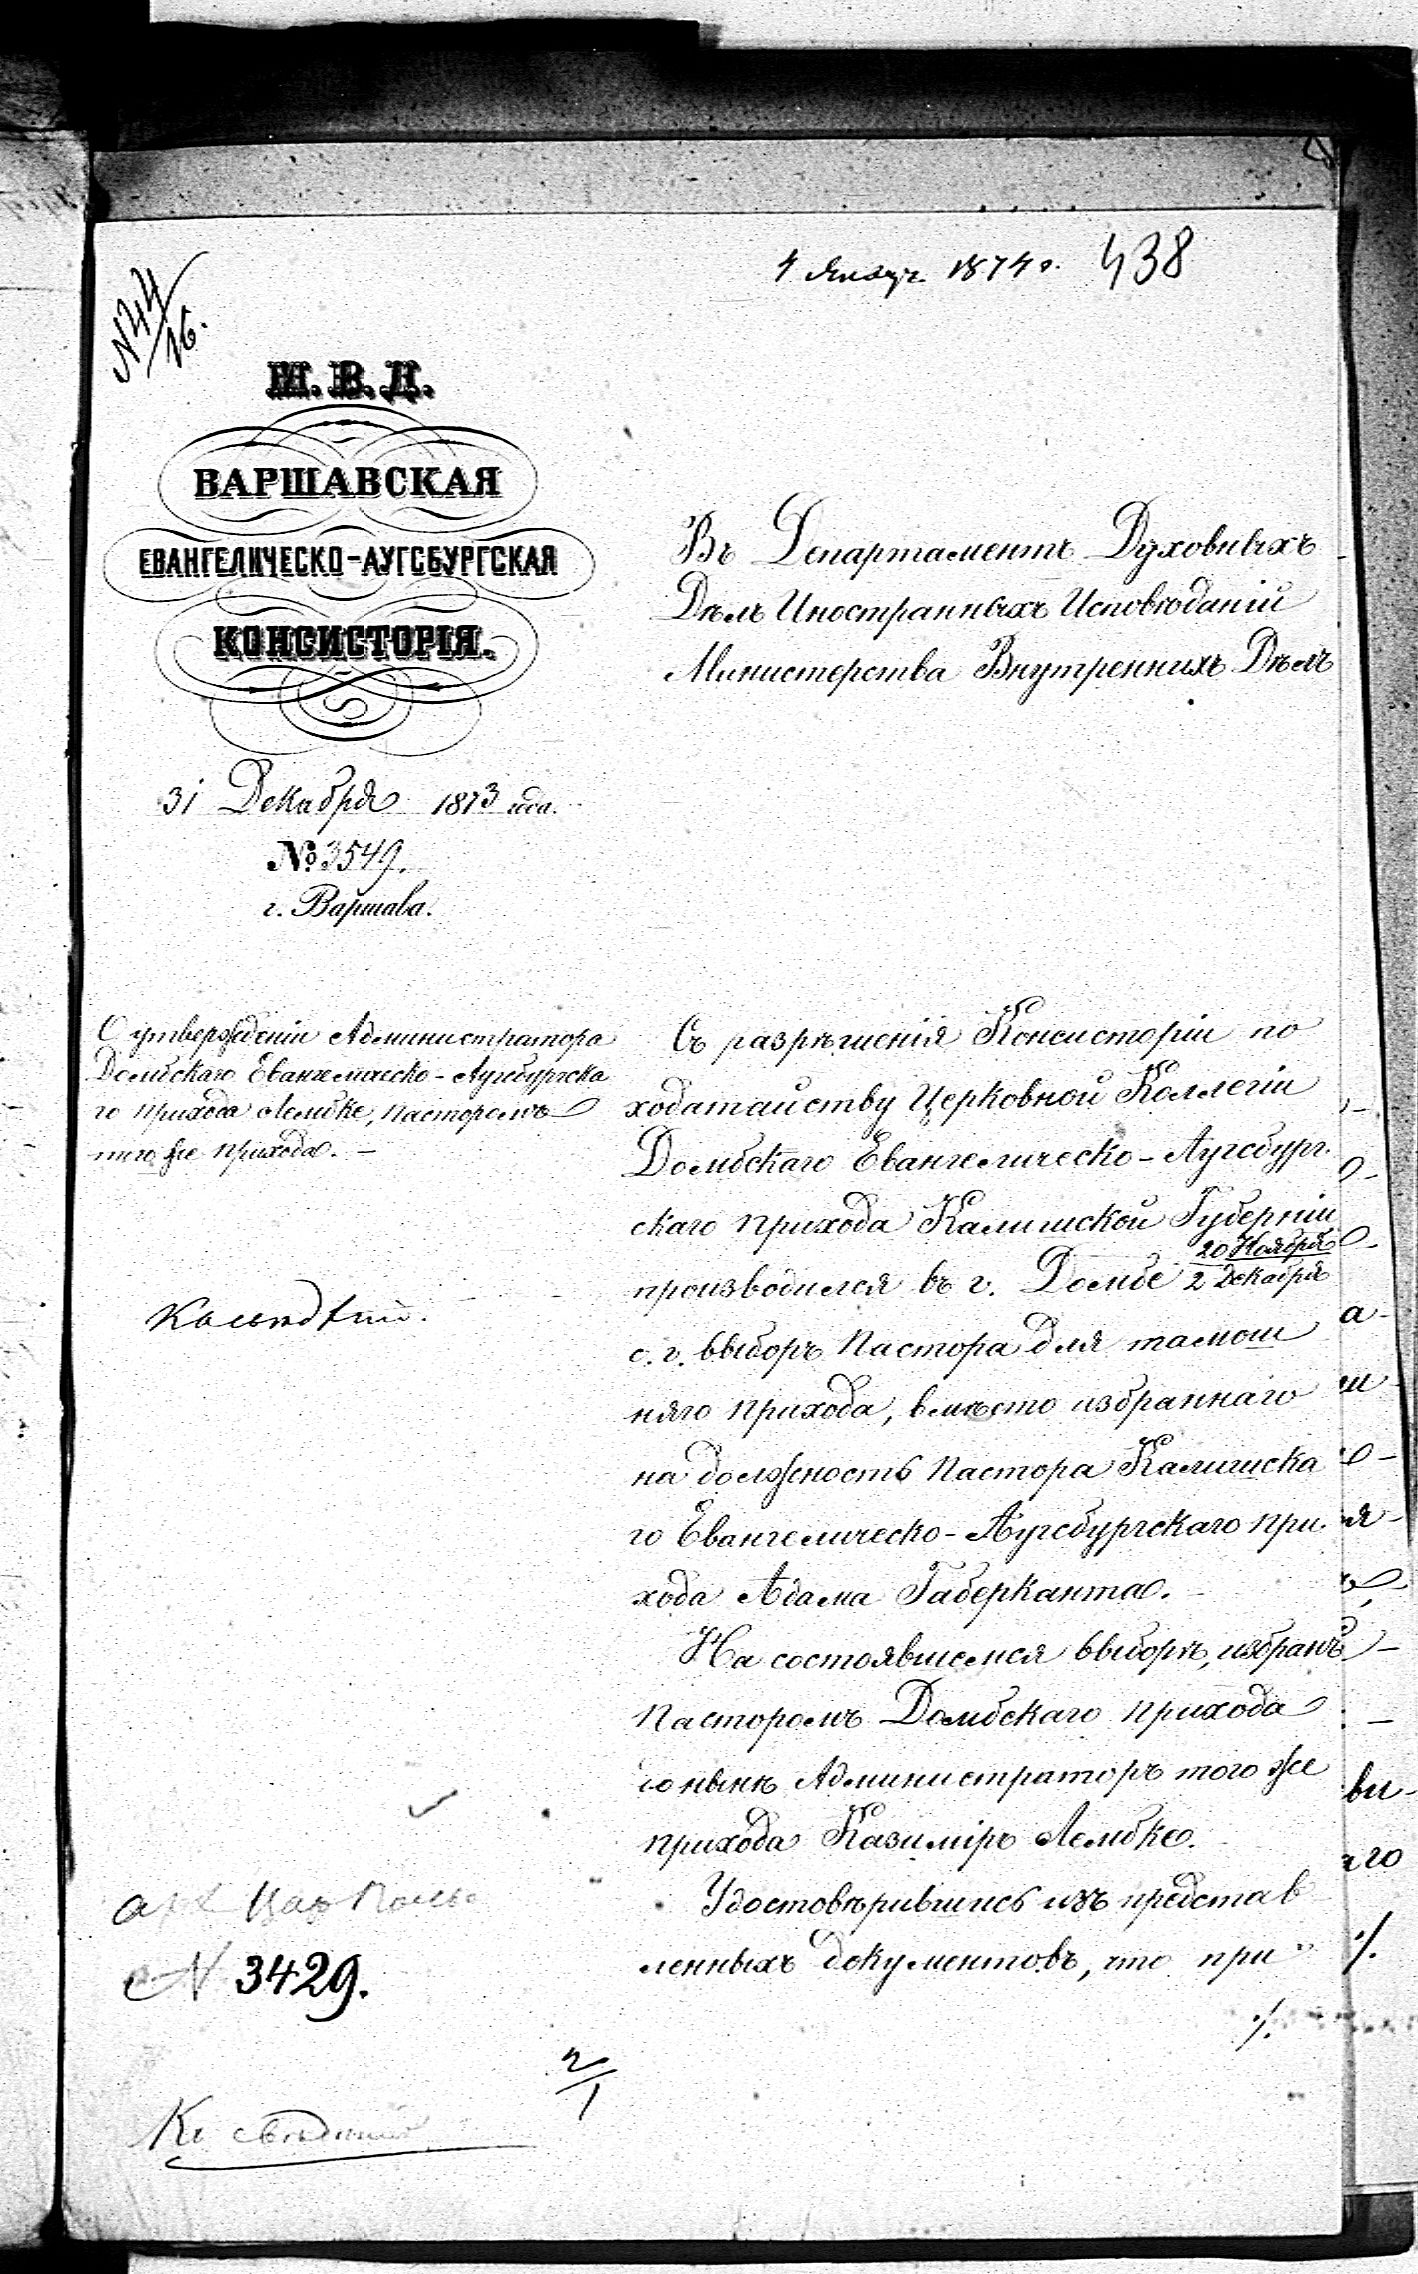 4 Январ 1874 г. 438
№ 44/16.
М. В. Д.
ВАРШАВСКАЯ
ЕВАНГЕЛИЧЕСКО-АУГСБУРГСКАЯ
КОНСИСТОРІЯ.
31 Декабря 1873 года.
№ 3549.
г. Варшава.
Въ Департаментъ Духовныхъ
Дѣлъ Иностранныхъ Исповѣданій
Министерства Внутреннихъ Дѣлъ
О утвержденіи Администратора
Домбскаго Евангелическо-Аугсбургска
го прихода Лембке, пасторомъ
того же прихода. —
Съ разрѣшенія Консисторіи по
ходатайству Церковной Коллегіи
Домбскаго Евангелическо-Аугсбург.
скаго прихода Калишской Губерніи
производился въ г. Домбе 20 Ноября / 2 Декабря
с. г. выборъ Пастора для тамош
няго прихода, вмѣсто избраннаго
на должность Пастора Калишска
го Евангелическо-Аугсбургскаго при.
хода Адама Габерканта.
На состоявшемся выборѣ, избранъ
Пасторомъ Домбскаго прихода
нынѣ Администраторъ того же
прихода Казиміръ Лембке.
Удостовѣрившись изъ представ
ленныхъ документовъ, что при
./.
а-
ш-
я-
ви-
го
./.
арх Цар Поль
№ 3429.
2/1
Къ свѣдѣнію